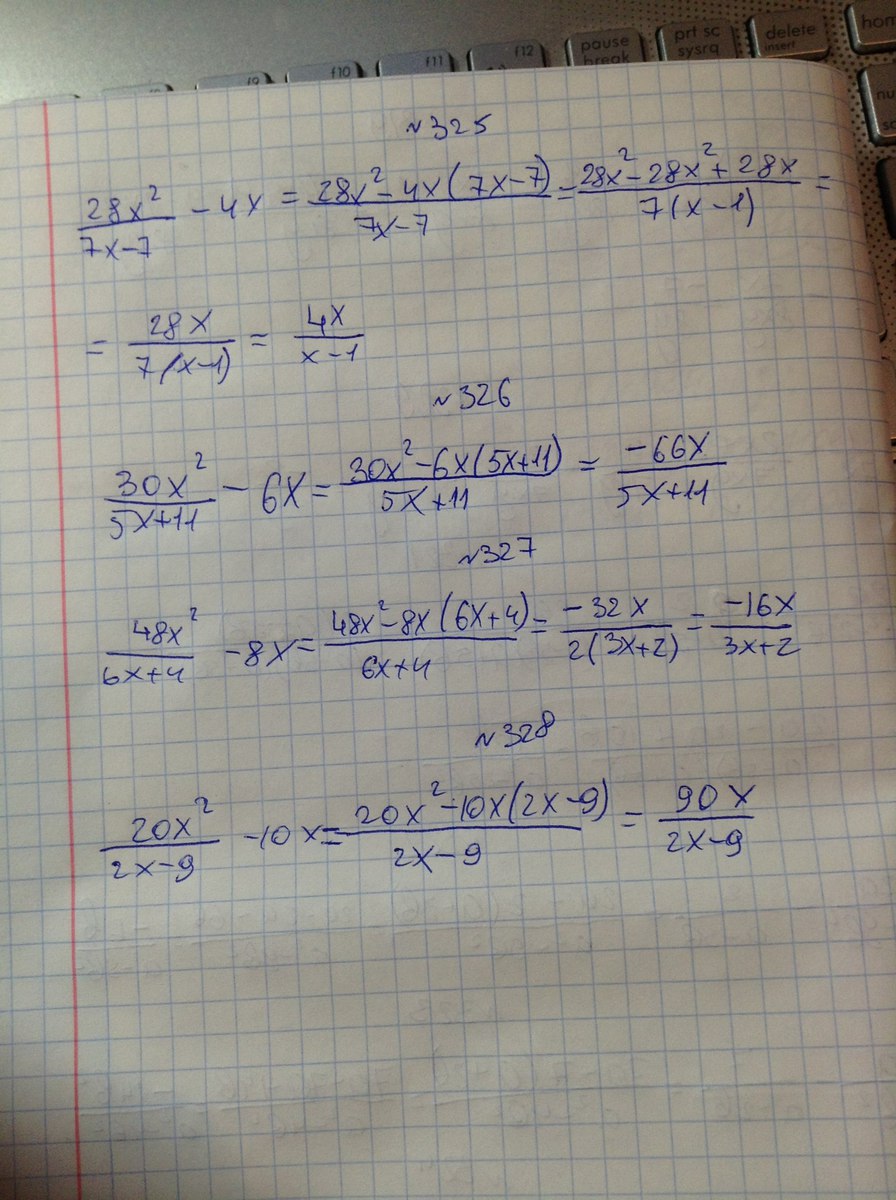 f9 f10 f11 f12 pause break prt sc sysrq delete insert
№325
28x²/(7x-7) - 4x = (28x² - 4x(7x-7))/(7x-7) = (28x² - 28x² + 28x)/(7(x-1)) =
= 28x/(7(x-1)) = 4x/(x-1)
№326
30x²/(5x+11) - 6x = (30x² - 6x(5x+11))/(5x+11) = -66x/(5x+11)
№327
48x²/(6x+4) - 8x = (48x² - 8x(6x+4))/(6x+4) = -32x/(2(3x+2)) = -16x/(3x+2)
№328
20x²/(2x-9) - 10x = (20x² - 10x(2x-9))/(2x-9) = 90x/(2x-9)